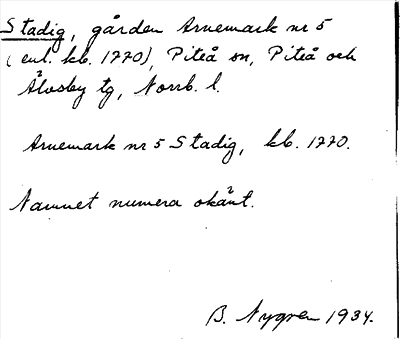 Stadig, gården Arnemark nr 5
(enl. kb. 1770), Piteå sn, Piteå och
Älvsby tg, Norrb. l.
Arnemark nr 5 Stadig, kb. 1770.
Namnet numera okänt.
B. Nygren 1934.